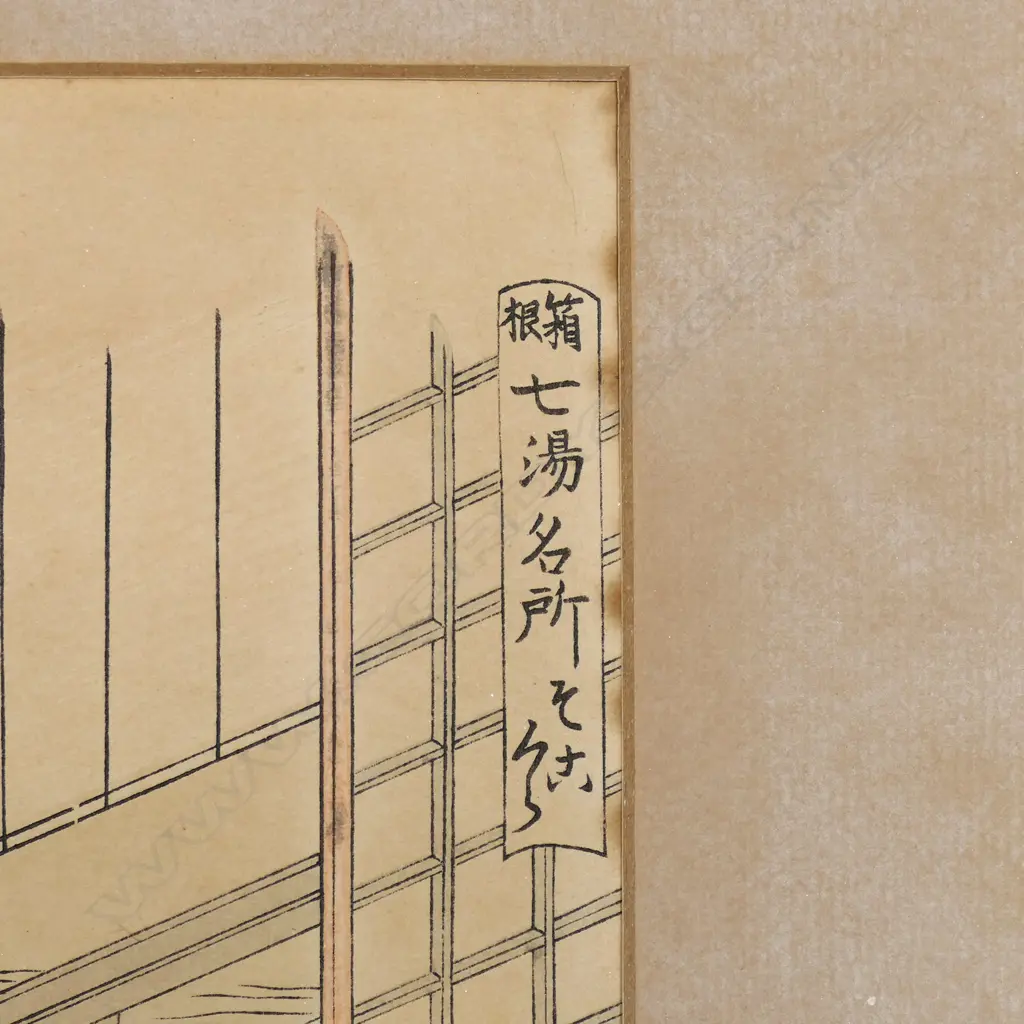 箱根
七湯名所
そこくら